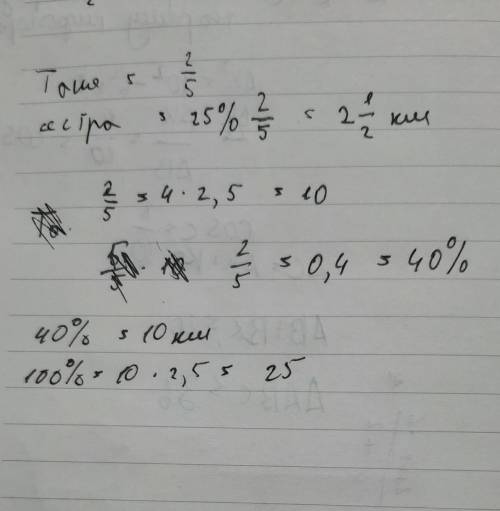 Таня = 2/5
сестра = 25% 2/5 = 2 1/2 км
2/5 = 4 · 2,5 = 10
2/5 = 0,4 = 40%
40% = 10 км
100% = 10 · 2,5 = 25